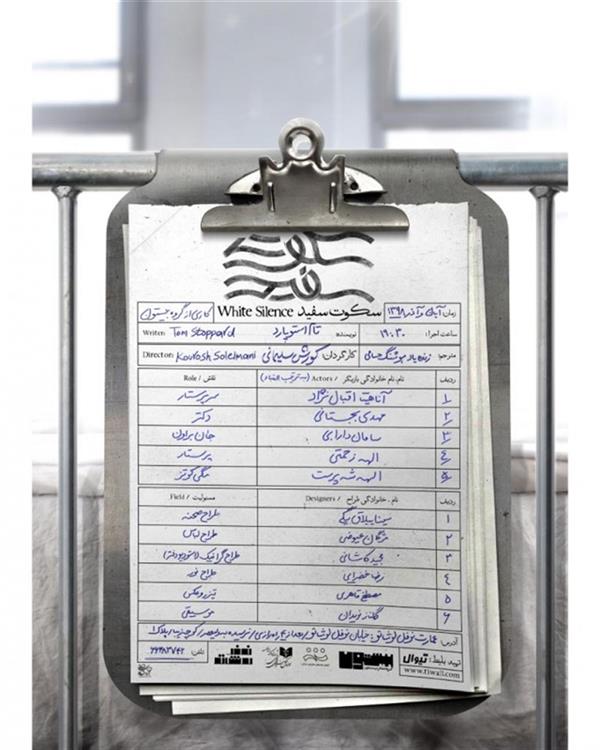 سکوت سفید
زمان آبان و آذر ۱۳۹۸ سکوت سفید White Silence کاری از گروه جیستول
ساعت اجرا: ۱۹:۳۰ نویسنده تام استوپارد Writen: Tom Stoppard
مترجم: زنده یاد هوشنگ حسامی کارگردان کورش سلیمانی Director: Kourosh Soleimani
ردیف نام، نام خانوادگی بازیگر / Actors (به ترتیب الفبا) نقش / Role
۱ آناهیتا اقبال نژاد سرپرستار
۲ مهدی بجستانی دکتر
۳ سامان دارابی جان براون
۴ الهه زحمتی پرستار
۵ الهه شه پرست مگی کوتز
ردیف نام، خانوادگی طراح / Designers مسئولیت / Field
۱ سینا ییلاق بیگی طراح صحنه
۲ مژگان عیوضی طراح لباس
۳ مجید کاشانی طراح گرافیک (استودیو دفتر)
۴ رضا خضرایی طراح نور
۵ مصطفی قاهری تیزر و عکس
۶ گلنز نویدان موسیقی
آدرس: عمارت نوفل لوشاتو: خیابان نوفل لوشاتو
تهیه بلیط: تیوال تلفن:
www.tiwall.com